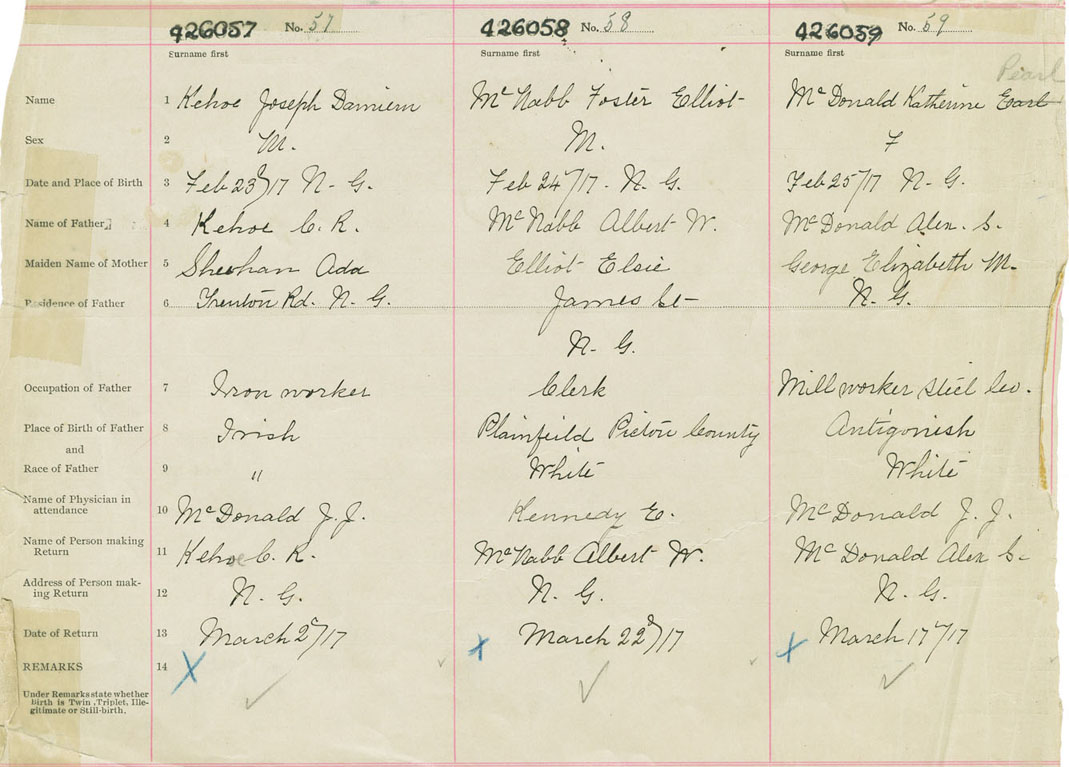 426057 No. 57 426058 No. 58 426059 No. 59
Surname first Surname first Surname first
Pearl
Name 1 Kehoe Joseph Damiem McNabb Foster Elliot McDonald Katherine Earl
Sex 2 M. M. F
Date and Place of Birth 3 Feb 23/17 N. G. Feb 24/17. N. G. Feb 25/17 N. G.
Name of Father 4 Kehoe C. R. McNabb Albert W. McDonald Alex. S.
Maiden Name of Mother 5 Sheehan Ada Elliot Elsie George Elizabeth M.
Residence of Father 6 Trenton Rd. N. G. James St N. G.
N. G.
Occupation of Father 7 Iron worker Clerk Mill worker Steel Co.
Place of Birth of Father 8 Irish Plainfeild Pictou County Antigonish
and
Race of Father 9 " White White
Name of Physician in
attendance 10 McDonald J. J. Kennedy E. McDonald J. J.
Name of Person making
Return 11 Kehoe C. R. McNabb Albert W. McDonald Alex S.
Address of Person mak-
ing Return 12 N. G. N. G. N. G.
Date of Return 13 March 2/17 March 22/17 March 17/17
REMARKS 14
Under Remarks state whether
Birth is Twin, Triplet, Ille-
gitimate or Still-birth.